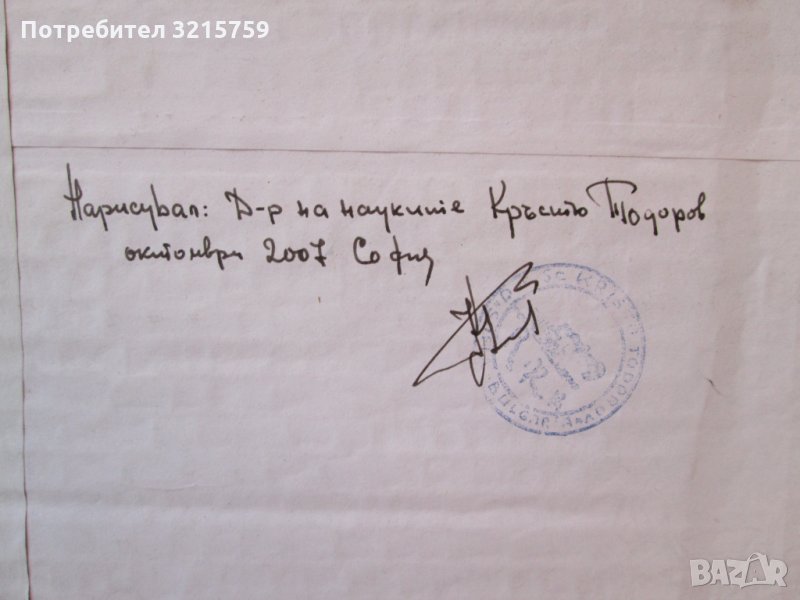 Потребител 3215759
Нарисувал: Д-р на науките Кръстю Тодоров
октомври 2007 София
BAZAR